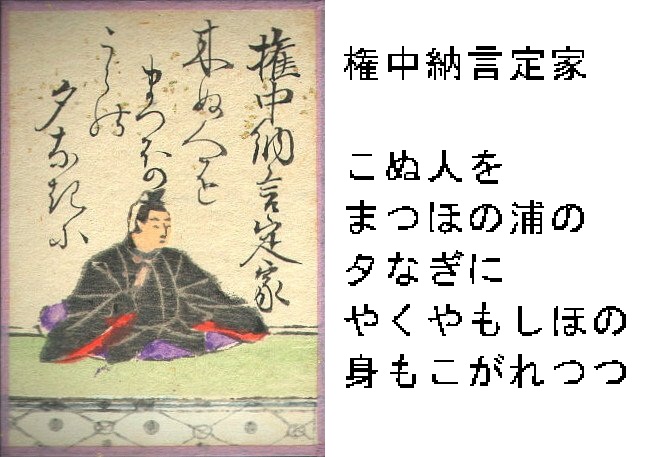 權中納言定家
来ぬ人を
まつほの
うらの
夕なきに
権中納言定家
こぬ人を
まつほの浦の
夕なぎに
やくやもしほの
身もこがれつつ